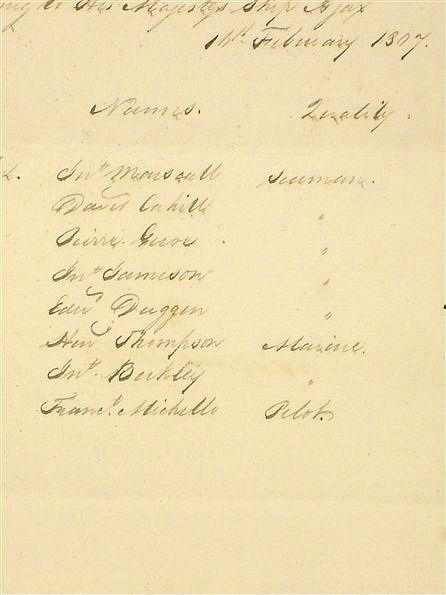 to His Majestys Ship Ajax
14th February 1807.
Names. Quality.
Jno Seamen.
David Cahill "
Pierre "
Jno Jameson "
Edwd Duggen "
Heny Thompson Marine.
Jno Beckley "
Francs Michello Pilot